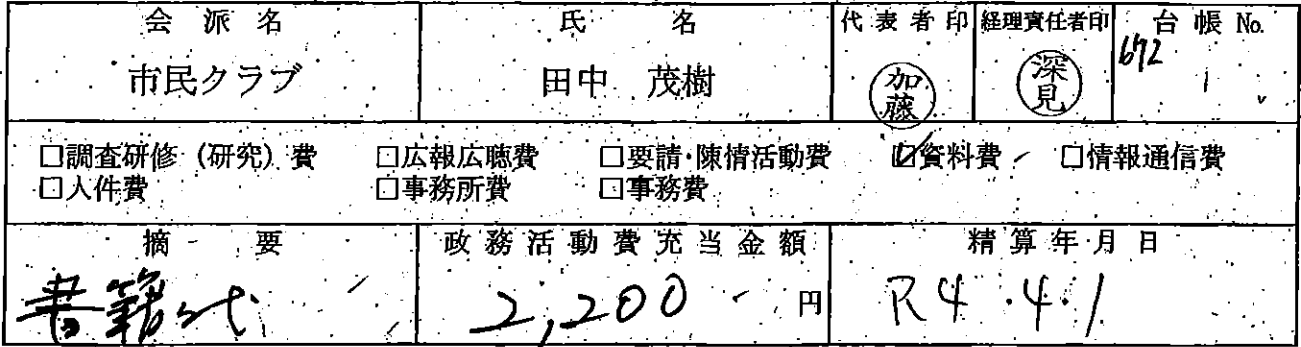 会派名 氏名 代表者印 経理責任者印 台帳No.
市民クラブ 田中 茂樹 加藤 深見 672
□調査研修（研究）費 □広報広聴費 □要請・陳情活動費 ☑資料費 □情報通信費
□人件費 □事務所費 □事務費
摘要 政務活動費充当金額 精算年月日
書籍代 2,200円 R4.4.1